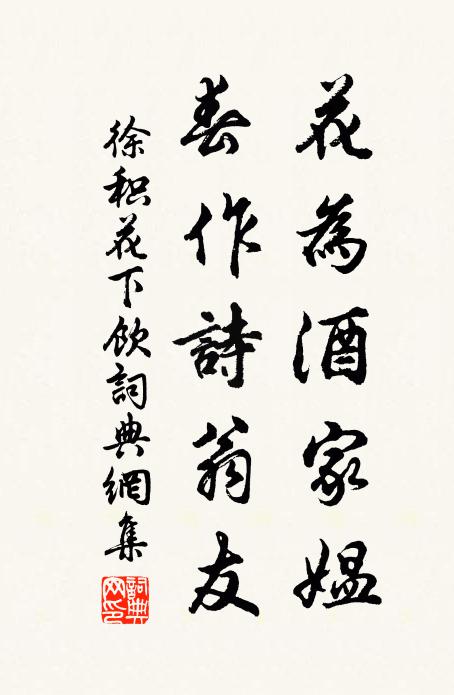 花為酒家媼
春作詩翁友
徐积花下飲詞典網集
詞典網印